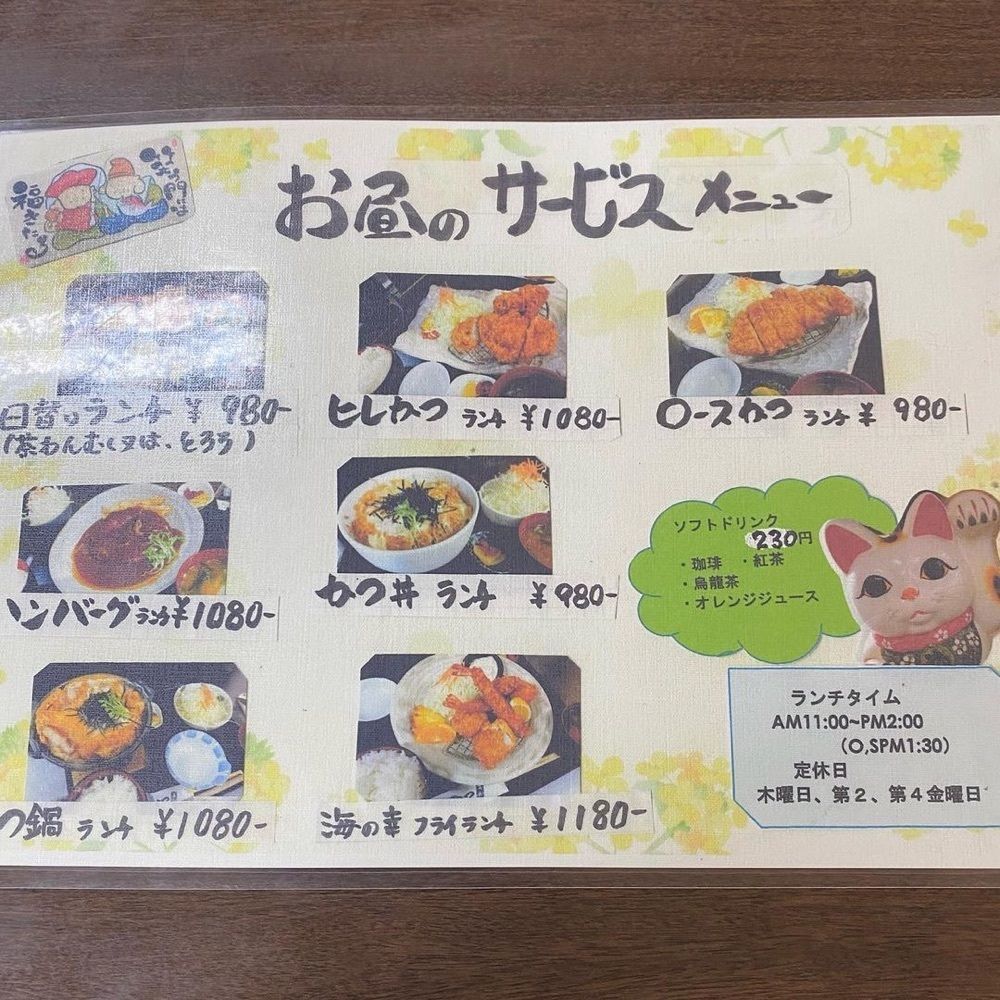 福きたる
お昼のサービスメニュー
日替りランチ ¥980-
(茶わんむし又は、とろろ)
ヒレかつランチ ¥1080-
ロースかつランチ ¥980-
ハンバーグランチ¥1080-
かつ丼ランチ ¥980-
ソフトドリンク
230円
・珈琲 ・紅茶
・烏龍茶
・オレンジジュース
つ鍋ランチ ¥1080-
海の幸フライランチ ¥1180-
ランチタイム
AM11:00~PM2:00
(O,SPM1:30)
定休日
木曜日、第2、第4金曜日